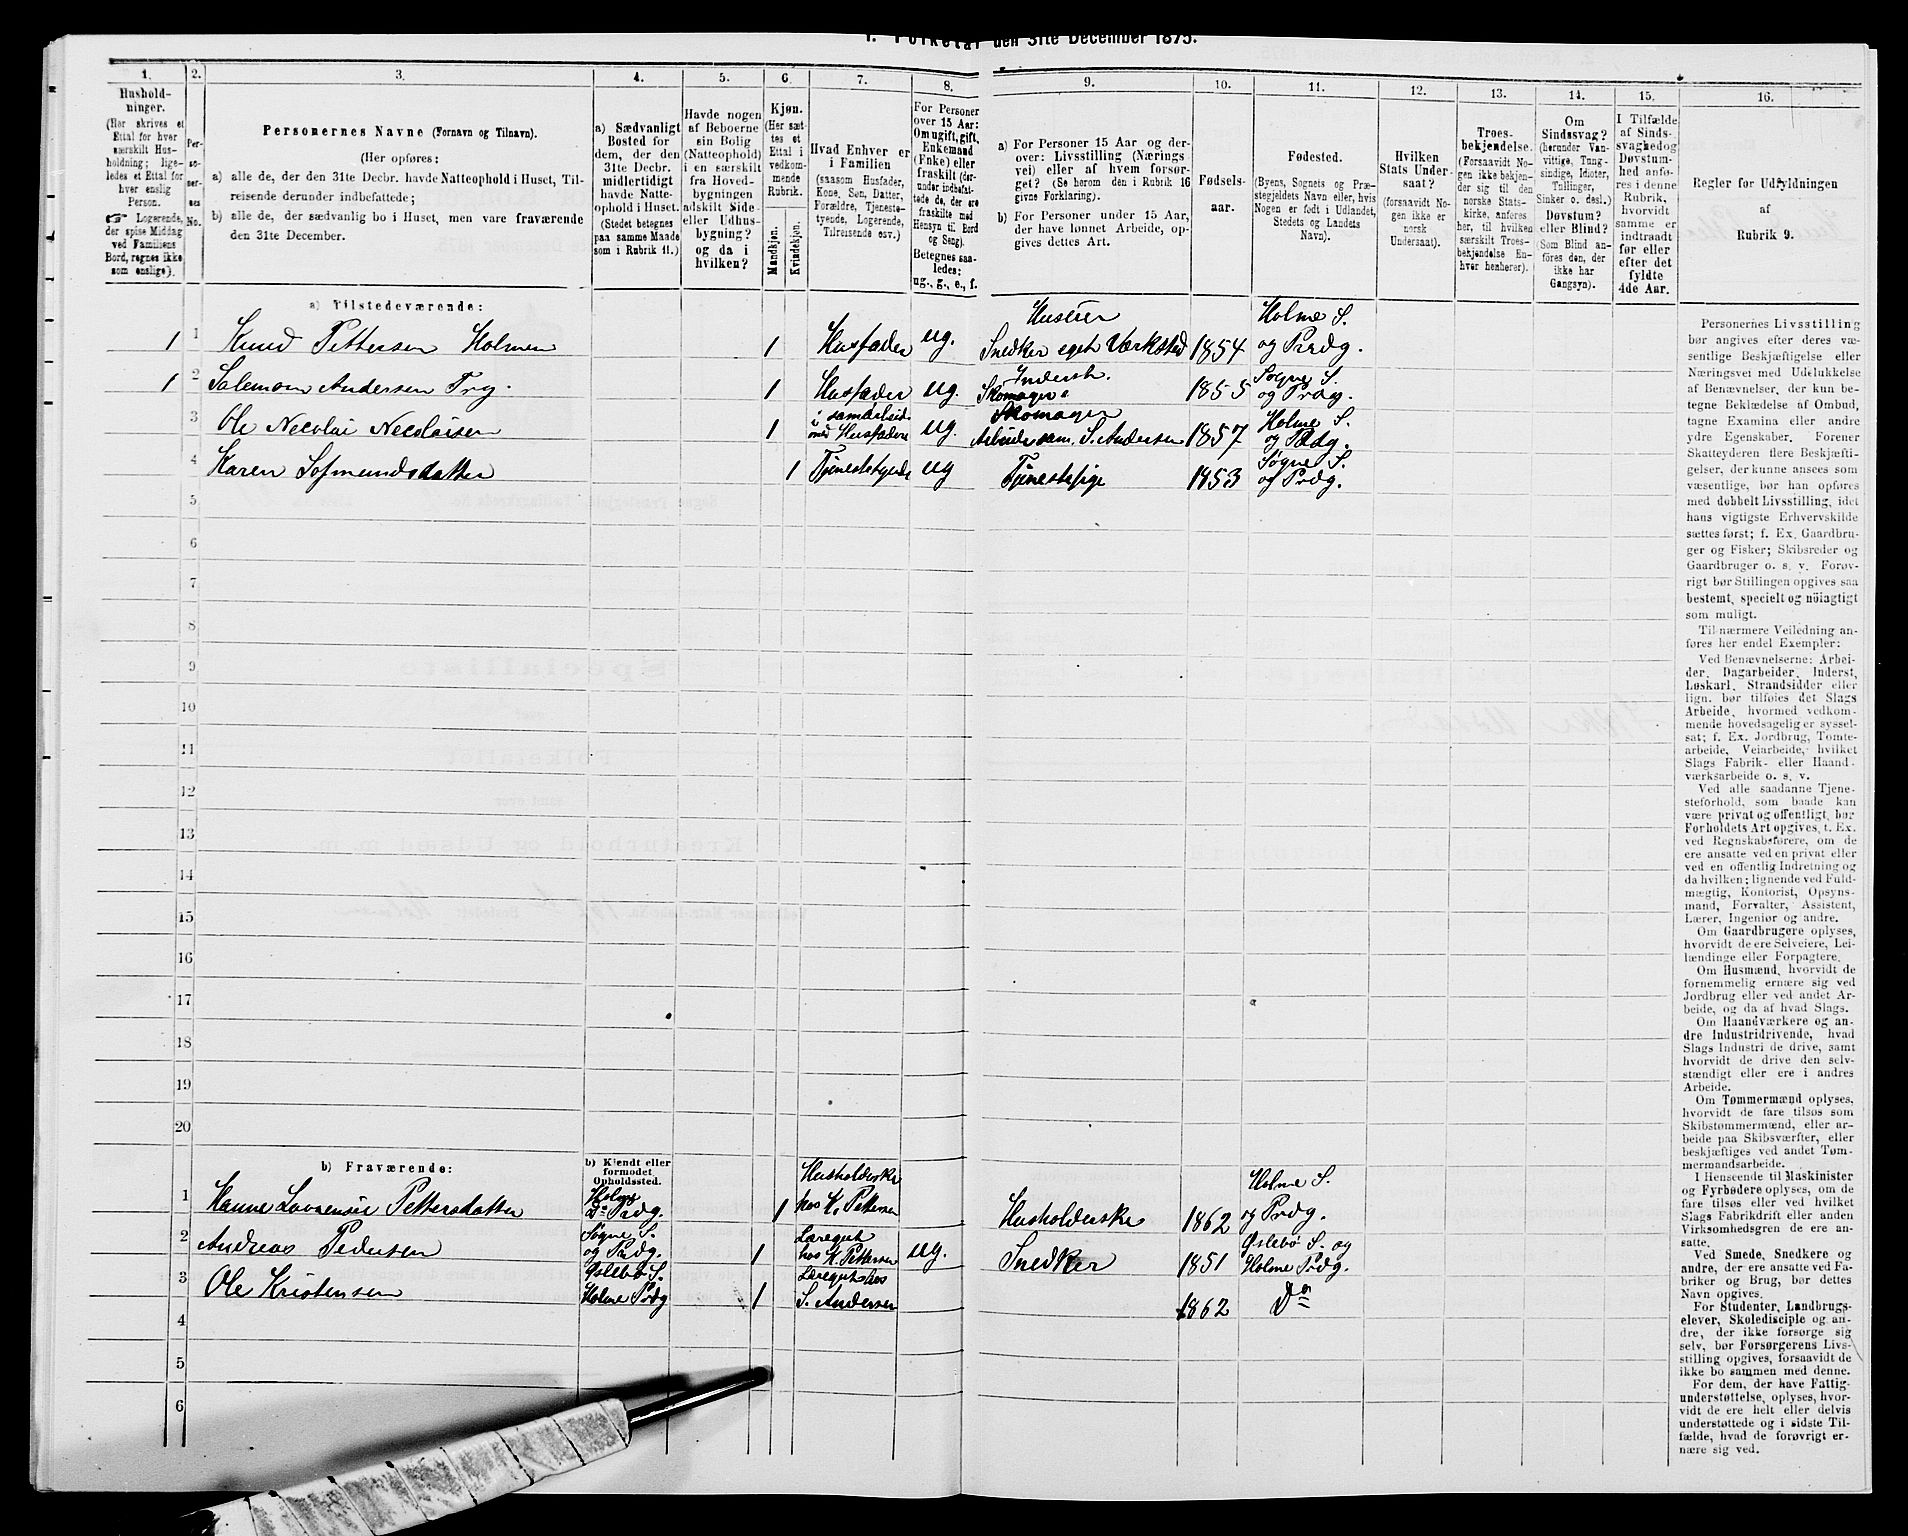 I. Folketal den 31te December 1875.
1.
2.
3.
4.
5.
6.
7.
8.
9.
10.
11.
12.
13.
14.
15.
16.
Hushold-
ninger.
(Her skrives et
Ettal for hver
særskilt Hus-
holdning; lige-
ledes et Ettal for
hver enslig
Person.
☞ Logerende,
der spise Middag
ved Familiens
Bord, regnes ikke
som enslige).
Per-
so-
ner-
nes
No.
Personernes Navne (Fornavn og Tilnavn).
(Her opføres:
a) alle de, der den 31te Decbr. havde Natteophold i Huset, Til-
reisende derunder indbefattede;
b) alle de, der sædvanlig bo i Huset, men vare fraværende
den 31te December.
a) Sædvanligt
Bosted for
dem, der den
31te Decbr.
midlertidigt
havde Natte-
ophold i Huset.
(Stedet betegnes
paa samme Maade
som i Rubrik 11.)
Havde nogen
af Beboerne
sin Bolig
(Natteophold)
i en særskilt
fra Hoved-
bygningen
adskilt Side-
eller Udhus-
bygning?
og da i
hvilken?
Kjøn.
(Her sæt-
tes et
Ettal i
vedkom-
mende
Rubrik.
Mandkjøn.
Kvindekjøn.
Hvad Enhver er
i Familien
(saasom Husfader,
Kone, Søn, Datter,
Forældre, Tjeneste-
tyende, Logerende,
Tilreisende osv.)
For Personer
over 15 Aar:
Om ugift, gift,
Enkemand
(Enke) eller
fraskilt (der-
under indbefat-
tede de, der ere
fraskilte med
Hensyn til Bord
og Seng).
Betegnes saa-
ledes:
ug., g., e., f.
a) For Personer 15 Aar og der-
over: Livsstilling (Nærings
vei) eller af hvem forsør-
get? (Se herom den i Rubrik 16
givne Forklaring).
b) For Personer under 15 Aar,
der have lønnet Arbeide, op-
gives dettes Art.
Fødsels-
aar.
Fødested.
(Byens, Sognets og Præ-
stegjeldets Navn eller, hvis
Nogen er født i Udlandet,
Stedets og Landets
Navn).
Hvilken
Stats Under-
saat?
(forsaavidt No-
gen ikke er
norsk
Undersaat).
Troes-
bekjendelse.
(Forsaavidt No-
gen ikke bekjen-
der sig til den
norske Stats-
kirke, anføres
her, til hvilken
særskilt Troes-
bekjendelse En-
hver henhører).
Om
Sindssvag?
(herunder Van-
vittige, Tung-
sindige, Idioter,
Tullinger,
Sinker o. desl.)
Døvstum?
eller Blind?
(Som Blind an-
føres den, der
ikke har
Gangsyn).
I Tilfælde
af Sinds-
svaghed og
Døvstum-
hed anfø-
res i denne
Rubrik,
hvorvidt
samme er
indtraadt
før eller
efter det
fyldte
4de Aar.
Regler for Udfyldningen
af
Rubrik 9.
a) Tilstedeværende:
1 1 Knud Pettersen Holmen 1 Husfader ug. Huseier Snedker eget Værksted 1854 Holme S. og Prdg.
1 2 Salemon Andersen Try. 1 Husfader ug. Inderst. Skomager 1855 Søgne S. og Prdg.
3 Ole Necolai Necolaisen 1 i samarbeid med Husfadere ug. Skomager Arbeide sam. S. Andersen 1857 Holme S. og Prdg.
4 Karen Sofmundsdatter 1 Tjenestetyende ug Tjenestepige 1853 Søgne S. og Prdg.
5
6
7
8
9
10
11
12
13
14
15
16
17
18
19
20
b) Fraværende:
b) Kjendt eller
formodet
Opholdssted.
1 Hanne Lovrensie Pettersdatter Holme Do Prdg. 1 Husholderske hos K. Pettersen Husholderske 1862 Holme S. og Prdg.
2 Andreas Pedersen Søgne S. og Prdg. 1 Læregut hos K. Pettersen ug. Snedker 1851 Øslebø S. og Holme Prdg.
3 Ole Kristensen Øslebø S. Holme Prdg 1 Læregut hos S. Andersen 1862 Do
4
5
6
Personernes Livsstilling
bør angives efter deres væ-
sentlige Beskjæftigelse eller
Næringsvei med Udelukkelse
af Benævnelser, der kun be-
tegne Beklædelse af Ombud,
tagne Examina eller andre
ydre Egenskaber. Forener
Skatteyderen flere Beskjæfti-
gelser, der kunne ansees som
væsentlige, bør han opføres
med dobbelt Livsstilling, idet
hans vigtigste Erhvervskilde
sættes først; f. Ex. Gaardbru-
ger og Fisker; Skibsreder og
Gaardbruger o. s. v. Forøv-
rigt bør Stillingen opgives saa
bestemt, specielt og nöiagtigt
som muligt.
Til nærmere Veiledning an-
føres her endel Exempler:
Ved Benævnelserne: Arbei-
der, Dagarbeider, Inderst,
Løskarl, Strandsidder eller
lign. bør tilføies det Slags
Arbeide, hvormed vedkom-
mende hovedsagelig er syssel-
sat; f. Ex. Jordbrug, Tomte-
arbeide, Veiarbeide, hvilket
Slags Fabrik- eller Haand-
værksarbeide o. s. v.
Ved alle saadanne Tjene-
steforhold, som baade kan
være privat og offentligt, bør
Forholdets Art opgives, t. Ex.
ved Regnskabsførere, om de
ere ansatte ved en privat eller
ved en offentlig Indretning og
da hvilken; lignende ved Fuld-
mægtig, Kontorist, Opsyns-
mand, Forvalter, Assistent,
Lærer, Ingeniør og andre.
Om Gaardbrugere oplyses,
hvorvidt de ere Selveiere, Lei-
lændinge eller Forpagtere.
Om Husmænd, hvorvidt de
fornemmelig ernære sig ved
Jordbrug eller ved andet Ar-
beide, og da af hvad Slags.
Om Haandværkere og an-
dre Industridrivende, hvad
Slags Industri de drive, samt
hvorvidt de drive den selv-
stændigt eller ere i andres
Arbeide.
Om Tømmermænd oplyses,
hvorvidt de fare tilsøs som
Skibstømmermænd, eller ar-
beide paa Skibsværfter, eller
beskjæftiges ved andet Tøm-
mermandsarbeide.
I Henseende til Maskinister
og Fyrbødere oplyses, om de
fare tilsøs eller ved hvilket
Slags Fabrikdrift eller anden
Virksomhedsgren de ere an-
satte.
Ved Smede, Snedkere og
andre, der ere ansatte ved Fa-
briker og Brug, bør dettes
Navn opgives.
For Studenter, Landbrugs-
elever, Skoledisciple og an-
dre, der ikke forsørge sig
selv, bør Forsørgerens Livs-
stilling opgives, forsaavidt de
ikke bo sammen med denne.
For dem, der have Fattig-
understøttelse, oplyses, hvor-
vidt de ere helt eller delvis
understøttede og i sidste Til-
fælde, hvad de forøvrigt er-
nære sig ved.